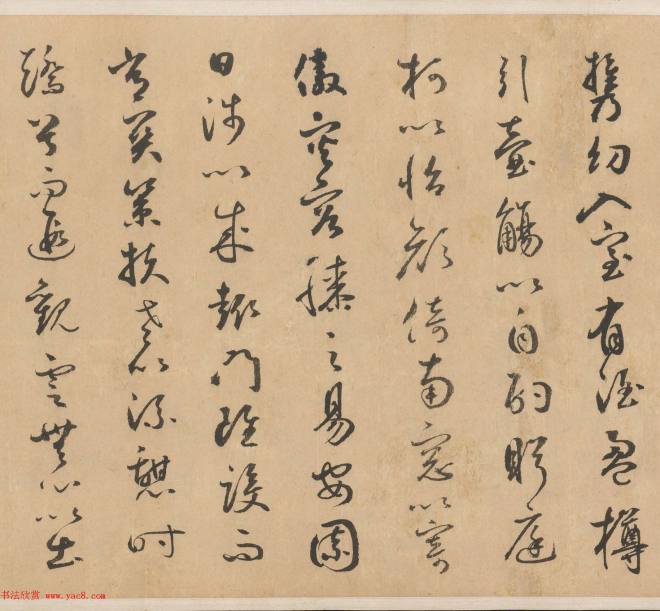 携幼入室有酒盈樽
引壺觴以自酌眄庭
柯以怡顏倚南窓以寄
傲審容膝之易安園
日涉以成趣門雖設而
常關策扶老以流憩時
矯首而遐觀雲無心以出
书法欣赏 www.yac8.com